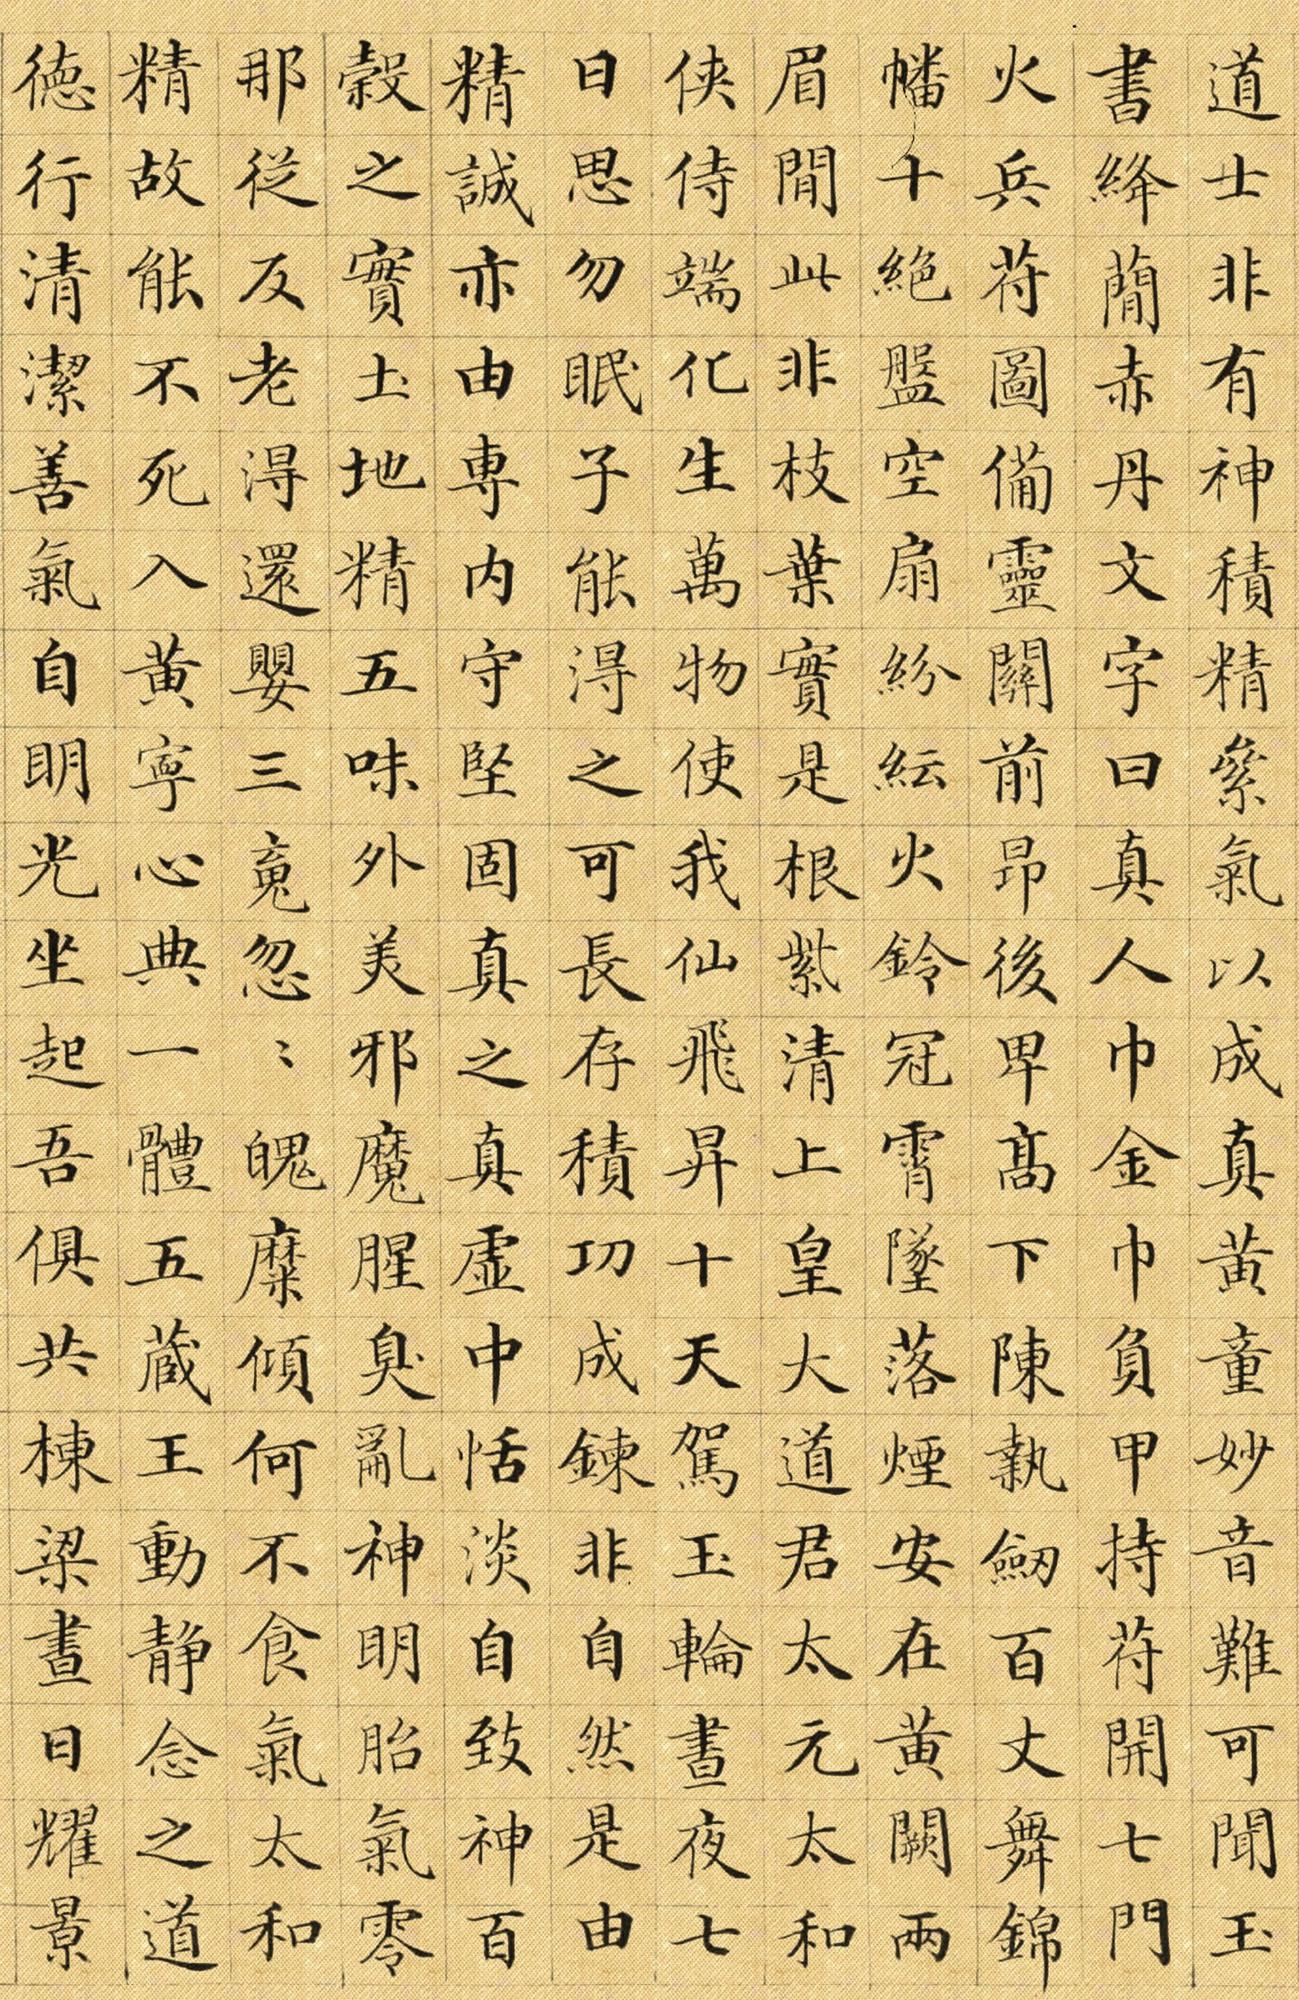 道士非有神積精絫氣以成真黃童妙音難可聞玉
書絳蕳赤丹文字曰真人巾金巾負甲持苻開七門
火兵苻圖備靈關前昂後卑髙下陳執劔百丈舞錦
幡十絕盤空扇紛紜火鈴冠霄墜落煙安在黃闕兩
眉間此非枝葉實是根紫清上皇大道君太元太和
俠侍端化生萬物使我仙飛昇十天駕玉輪晝夜七
日思勿眠子能淂之可長存積功成鍊非自然是由
精誠亦由専内守堅固真之真虛中恬淡自致神百
榖之實土地精五味外美邪魔腥臭亂神明胎氣零
那從反老淂還嬰三䰟忽〻魄糜傾何不食氣太和
精故能不死入黃寧心典一體五蔵王動静念之道
徳行清潔善氣自明光坐起吾俱共棟梁晝日耀景